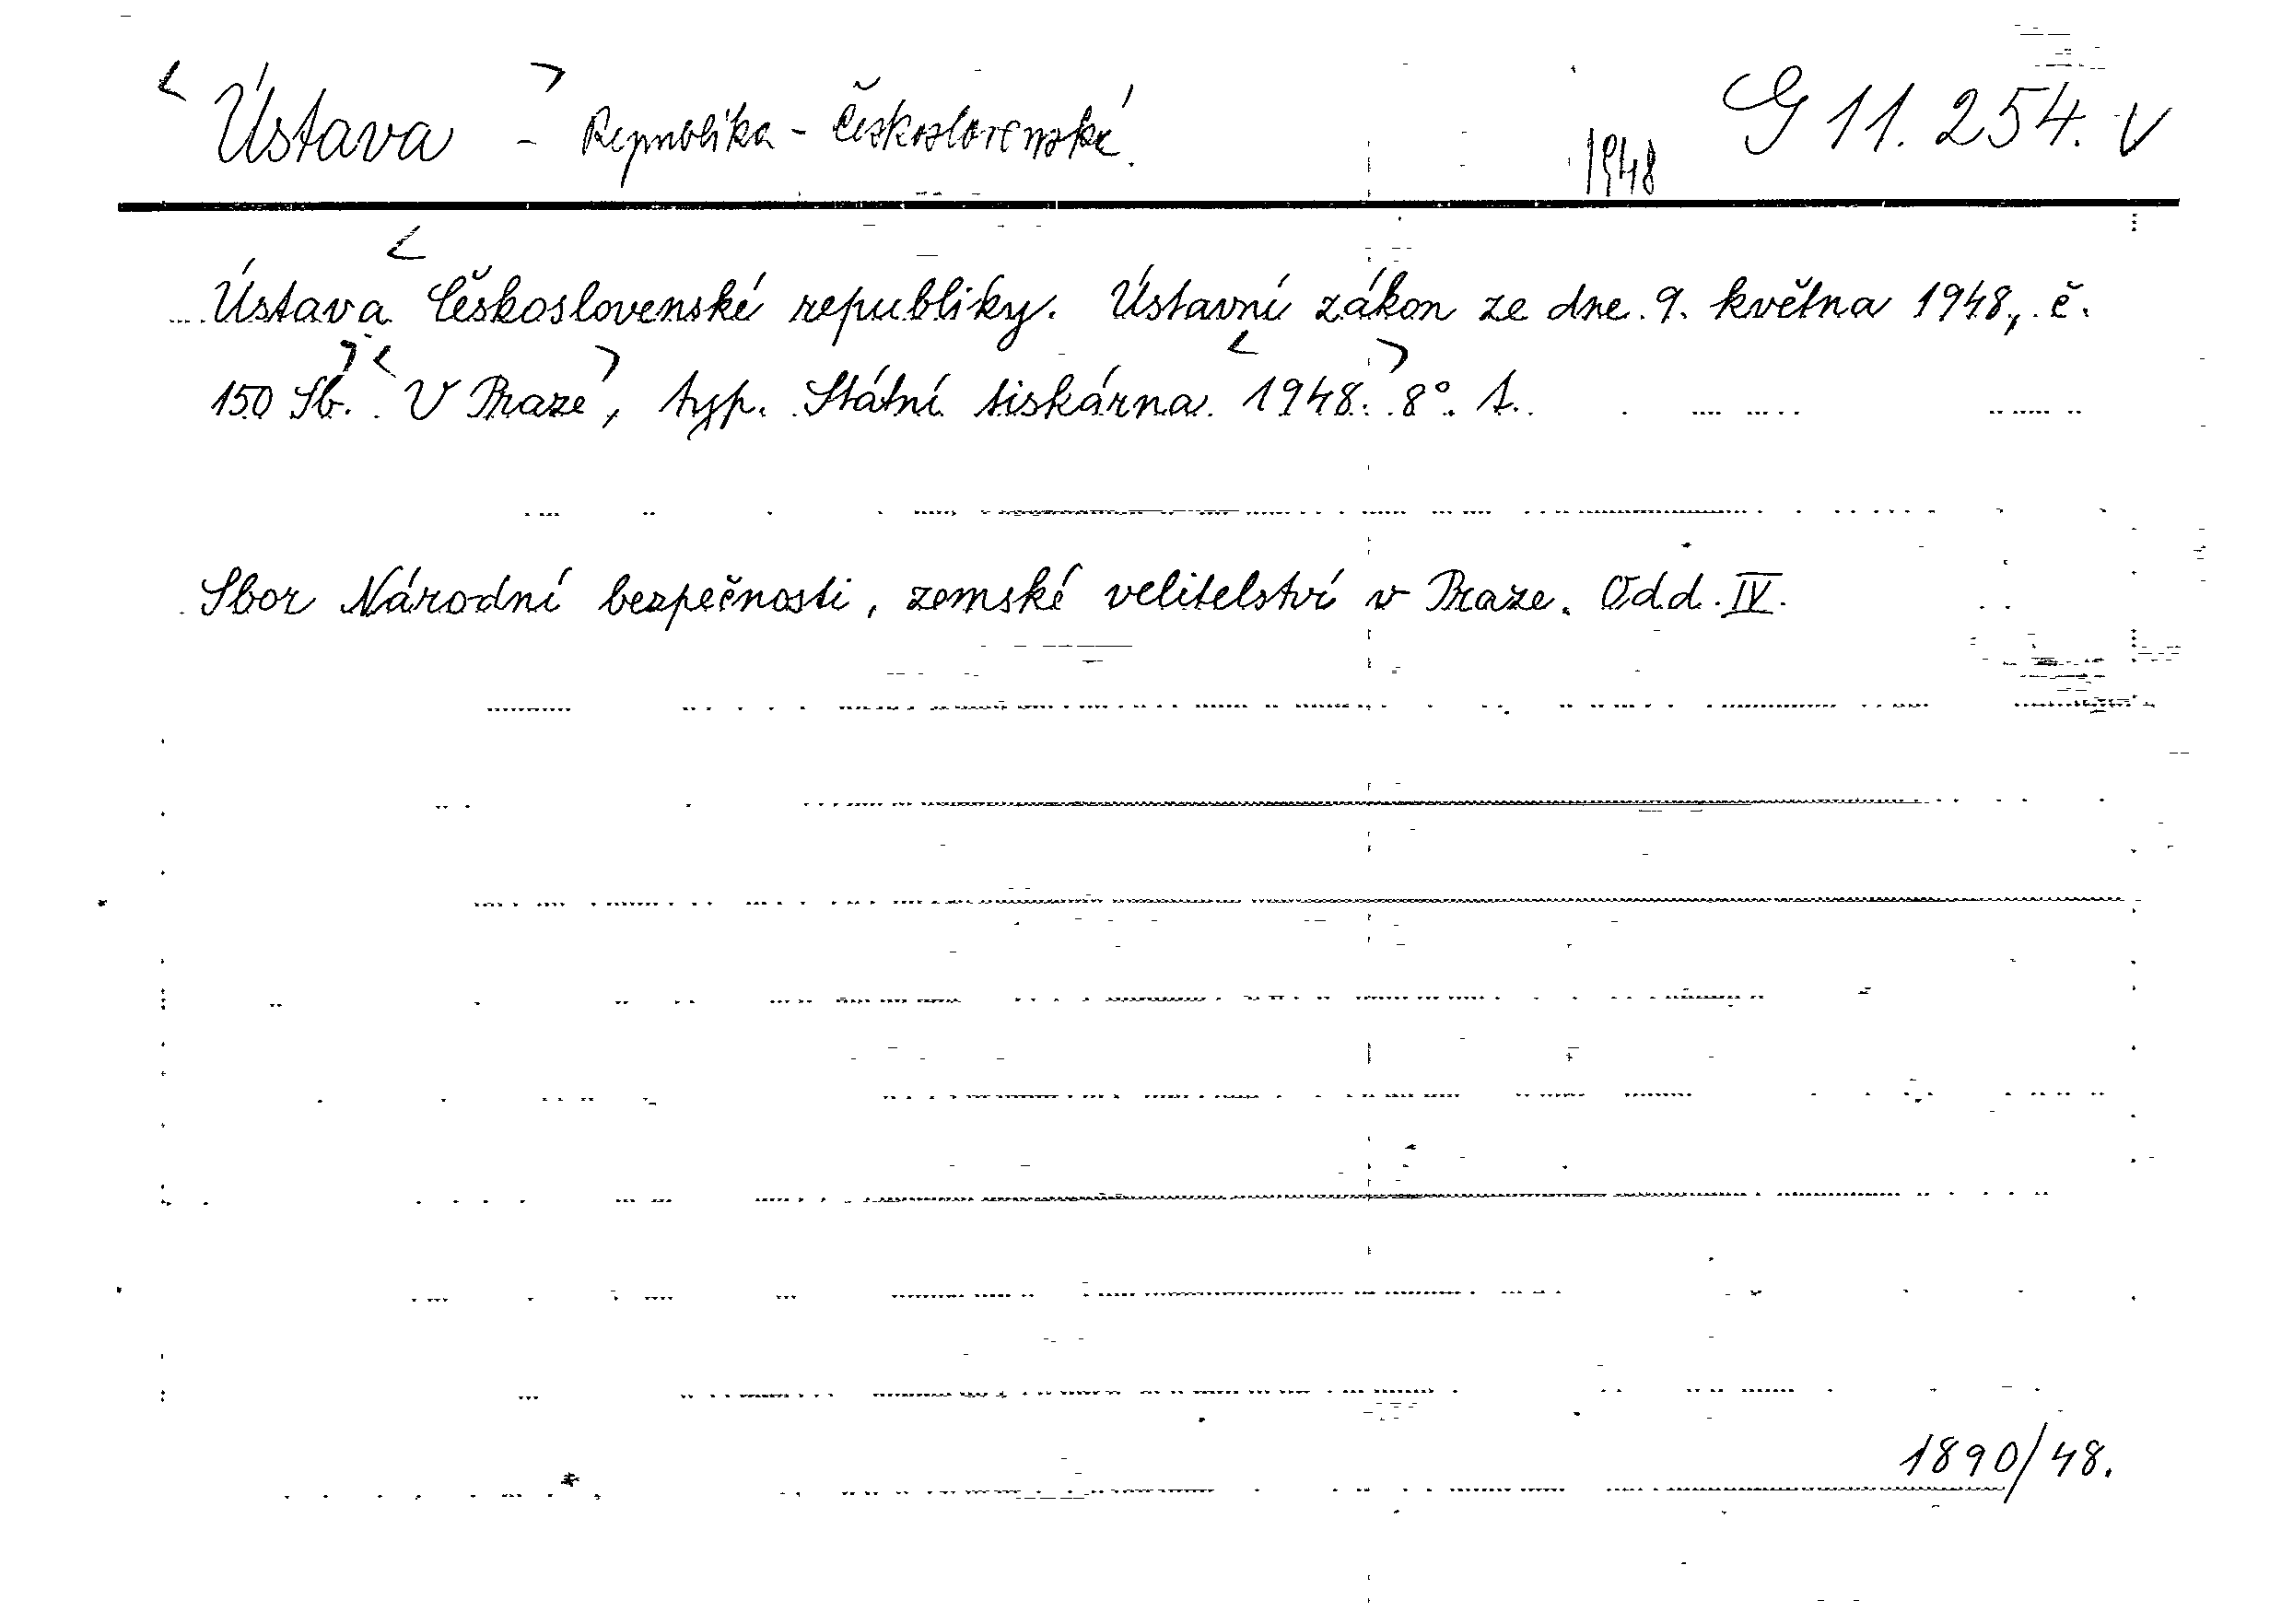 < Ústava > - Republika - Československá. 1948 G 11.254. V
Ústava < Československé republiky. Ústavní zákon ze dne 9. května 1948, č.
150 Sb. > < V Praze >, typ. Státní tiskárna < 1948. > 8°. 1.
Sbor Národní bezpečnosti, zemské velitelství v Praze. Odd. IV.
1890/48.